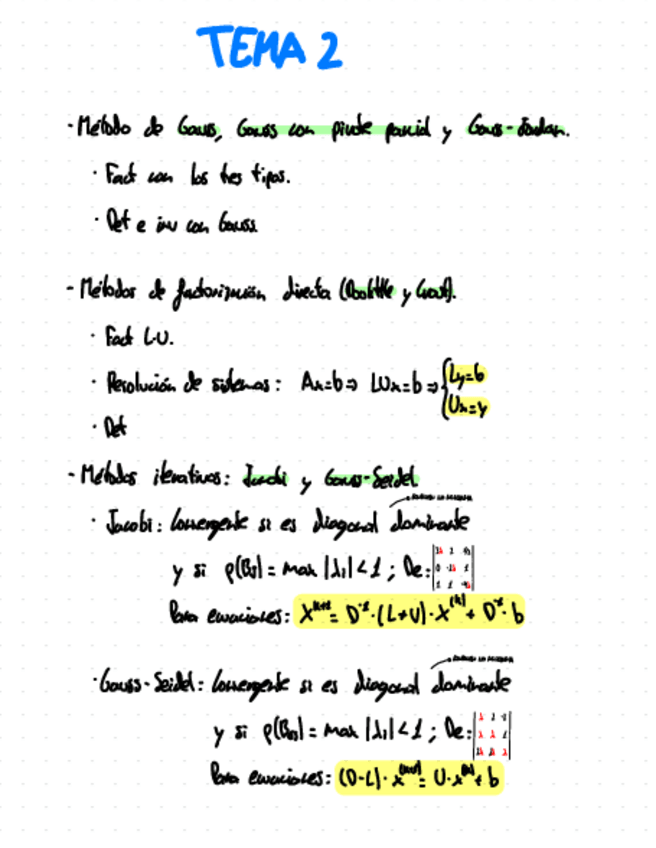 TEMA 2
- Método de Gauss, Gauss con pivote parcial y Gauss-Jordan.
· Fact con los tres tipos.
· Det e inv con Gauss
- Métodos de factorización directa (Doolittle y Crout).
· Fact L-U.
· Resolución de sistemas: Ax=b => LUx=b => { Ly=b
Ux=y
· Det
- Métodos iterativos: Jacobi y Gauss-Seidel
· Jacobi: Convergente si es diagonal dominante
y si ρ(BJ) = max |λi| < 1 ; De:
Para ecuaciones: X^(k+1) = D^-1·(L+U)·X^(k) + D^-1·b
· Gauss-Seidel: Convergente si es diagonal dominante
y si ρ(BGS) = max |λi| < 1 ; De:
Para ecuaciones: (D-L)·x^(k+1) = U·x^(k) + b